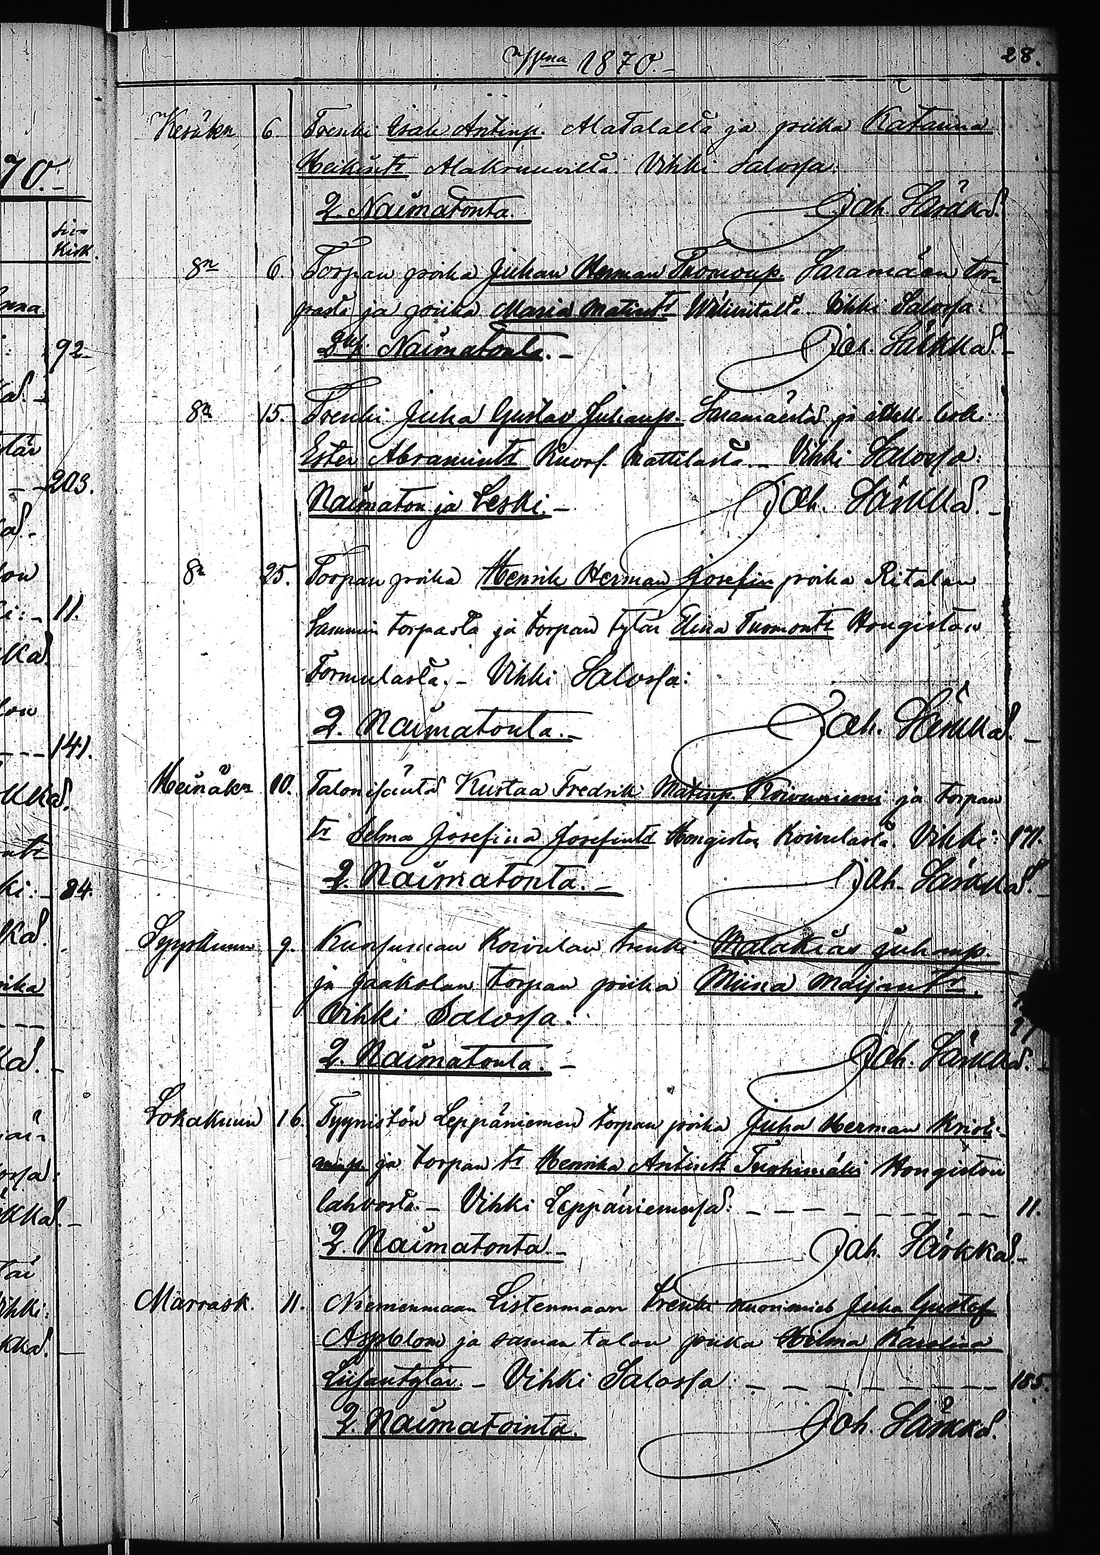 1870. 28.
Kesäku 6. Trenki Isak Antinp. Alatalalta ja piika Katariina
Heikint. Alakruuvilla. Vihki Salossa:
2 Naimatonta. Joh. Särkkä.
8n 6. Torpan poika Juhan Herman Tuomonp. Saramäen tor-
pasta ja piika Maria Matint: Vihki Salossa:
Naimatonta. Joh. Särkkä.
8n 15. Trenki Juha Gustav Juhanp. Saramäestä ja lesk.
Ester Abramintr Mattilasta. Vihki Salossa:
Naimaton ja Leski. Joh. Särkkä.
8n 25. Torpan poika Henrik Herman Josefin poika Ritalan
Sammin torpasta ja torpan tytär Elina Tuomontr Hongiston
Tormulasta. Vihki Salossa:
2. Naimatonta. Joh. Särkkä.
Heinäku 10. Talonisäntä Kustaa Fredrik Matinp. Koivuniemi ja torpan
tr Selma Josefiina Josefintr Hongiston Koivulasta. Vihki: 171.
2. Naimatonta. Joh. Särkkä.
Syyskuun 9. Koivulan trenki Malakias Juhanp.
ja Jaakolan torpan piika Miina Maijantr.
Vihki Salossa:
2. Naimatonta. Joh. Särkkä.
Lokakuun 16. Tyynistön Leppäniemen torpan poika Juha Herman Kristi-
aninp. ja torpan tr Henrika Antintr Tuohimäki Hongiston
lahvosta. Vihki Leppäniemessä: 11.
2. Naimatonta. Joh. Särkkä.
Marrask. 11. Niemenmaan Listenmaan trenki nuorimies Juha Gustaf
Asplom ja saman talon piika Hilma Karolina
Liisantytär. Vihki Salossa: 185.
2. Naimatointa. Joh. Särkkä.
70.
92
203.
11.
141.
84.